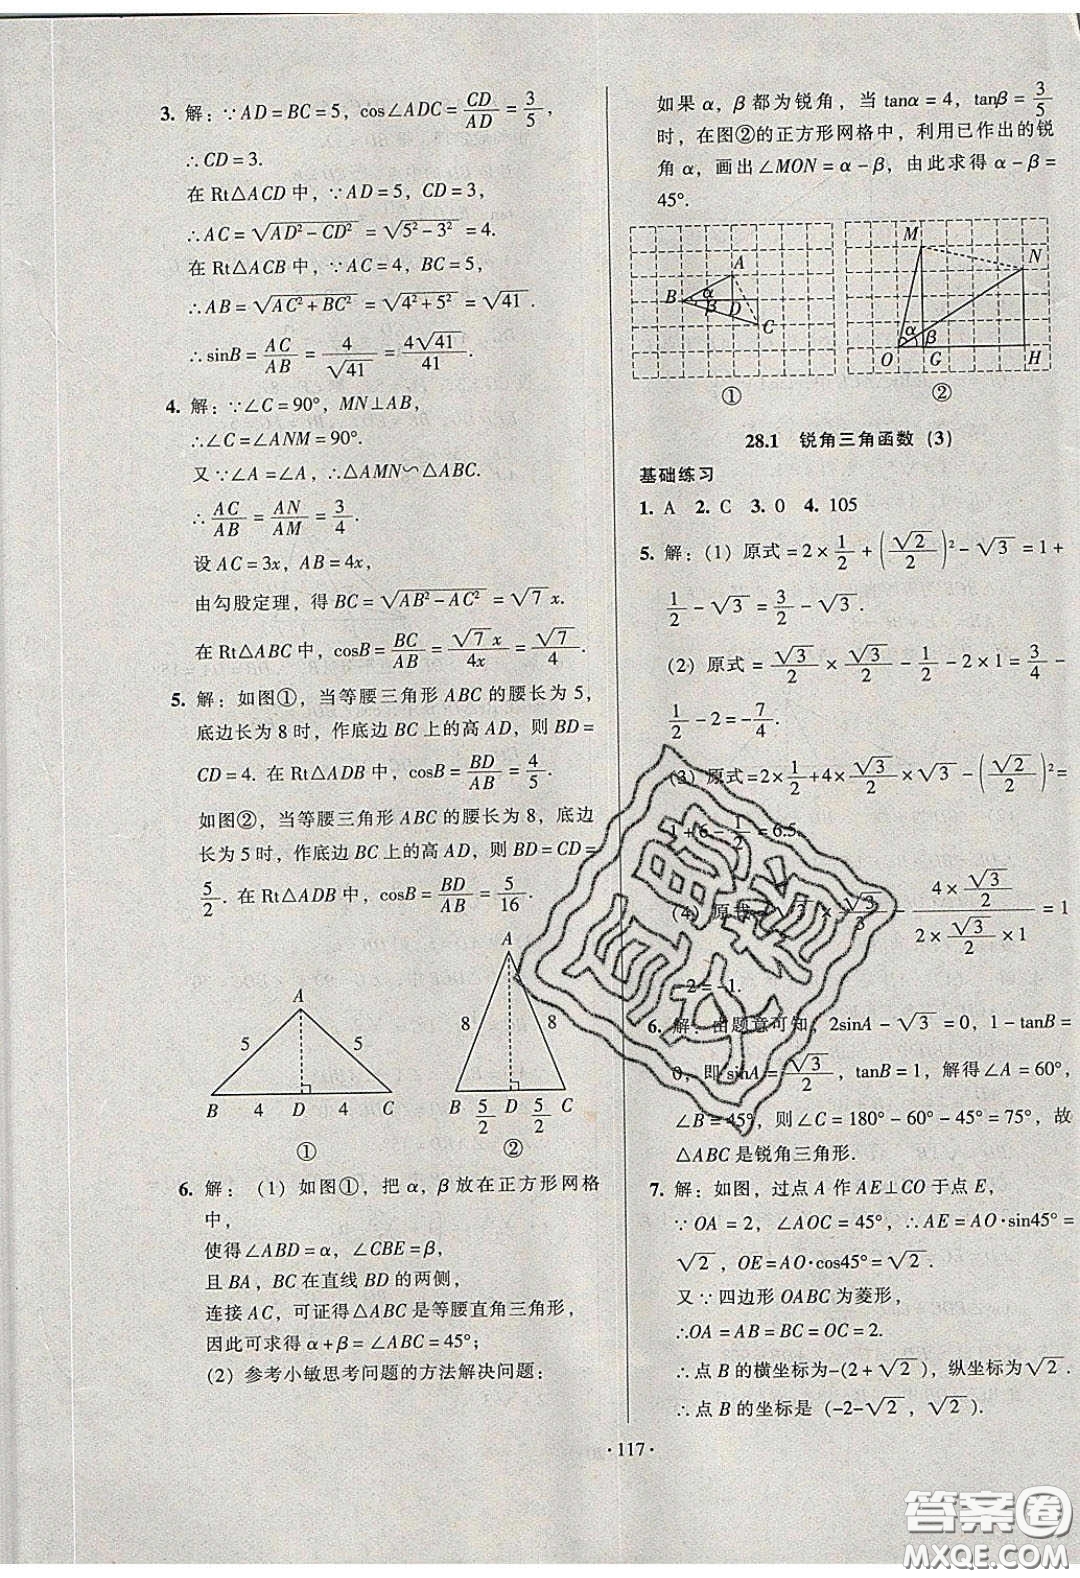 3. 解：∵AD=BC=5，cos∠ADC=CD/AD=3/5，
∴CD=3.
在Rt△ACD中，∵AD=5，CD=3，
∴AC=√(AD²-CD²)=√(5²-3²)=4.
在Rt△ACB中，∵AC=4，BC=5，
∴AB=√(AC²+BC²)=√(4²+5²)=√41.
∴sinB=AC/AB=4/√41=4√41/41.
4. 解：∵∠C=90°，MN⊥AB，
∴∠C=∠ANM=90°.
又∵∠A=∠A，∴△AMN∽△ABC.
∴AC/AB=AN/AM=3/4.
设AC=3x，AB=4x，
由勾股定理，得BC=√(AB²-AC²)=√7x.
在Rt△ABC中，cosB=BC/AB=√7x/4x=√7/4.
5. 解：如图①，当等腰三角形ABC的腰长为5，
底边长为8时，作底边BC上的高AD，则BD=
CD=4. 在Rt△ADB中，cosB=BD/AB=4/5.
如图②，当等腰三角形ABC的腰长为8，底边
长为5时，作底边BC上的高AD，则BD=CD=
5/2. 在Rt△ADB中，cosB=BD/AB=5/16.
A
5 5
B 4 D 4 C
①
A
8 8
B 5/2 D 5/2 C
②
6. 解：(1) 如图①，把α，β放在正方形网格
中，
使得∠ABD=α，∠CBE=β，
且BA，BC在直线BD的两侧，
连接AC，可证得△ABC是等腰直角三角形，
因此可求得α+β=∠ABC=45°；
(2) 参考小敏思考问题的方法解决问题：
如果α，β都为锐角，当tanα=4，tanβ=3/5
时，在图②的正方形网格中，利用已作出的锐
角α，画出∠MON=α-β，由此求得α-β=
45°.
A
B α β D
C
①
M
N
α β
O G H
②
28.1 锐角三角函数 (3)
基础练习
1. A 2. C 3. 0 4. 105
5. 解：(1) 原式=2×1/2+(√2/2)²-√3=1+
1/2-√3=3/2-√3.
(2) 原式=√3/2×√3/2-1/2-2×1=3/4-
1/2-2=-7/4.
(3) 原式=2×1/2+4×√3/2×√3-(√2/2)²=
1+6-1/2=6.5.
(4) 原式= × √3/3 - (4×√3/2)/(2×√3/2×1)=1
-2=-1.
6. 解：由题意可知，2sinA-√3=0，1-tanB=
0，即sinA=√3/2，tanB=1，解得∠A=60°，
∠B=45°，则∠C=180°-60°-45°=75°，故
△ABC是锐角三角形.
7. 解：如图，过点A作AE⊥CO于点E，
∵OA=2，∠AOC=45°，∴AE=AO·sin45°=
√2，OE=AO·cos45°=√2.
又∵四边形OABC为菱形，
∴OA=AB=BC=OC=2.
∴点B的横坐标为-(2+√2)，纵坐标为√2.
∴点B的坐标是 (-2-√2，√2).
·117·
答案圈
MXQE.COM